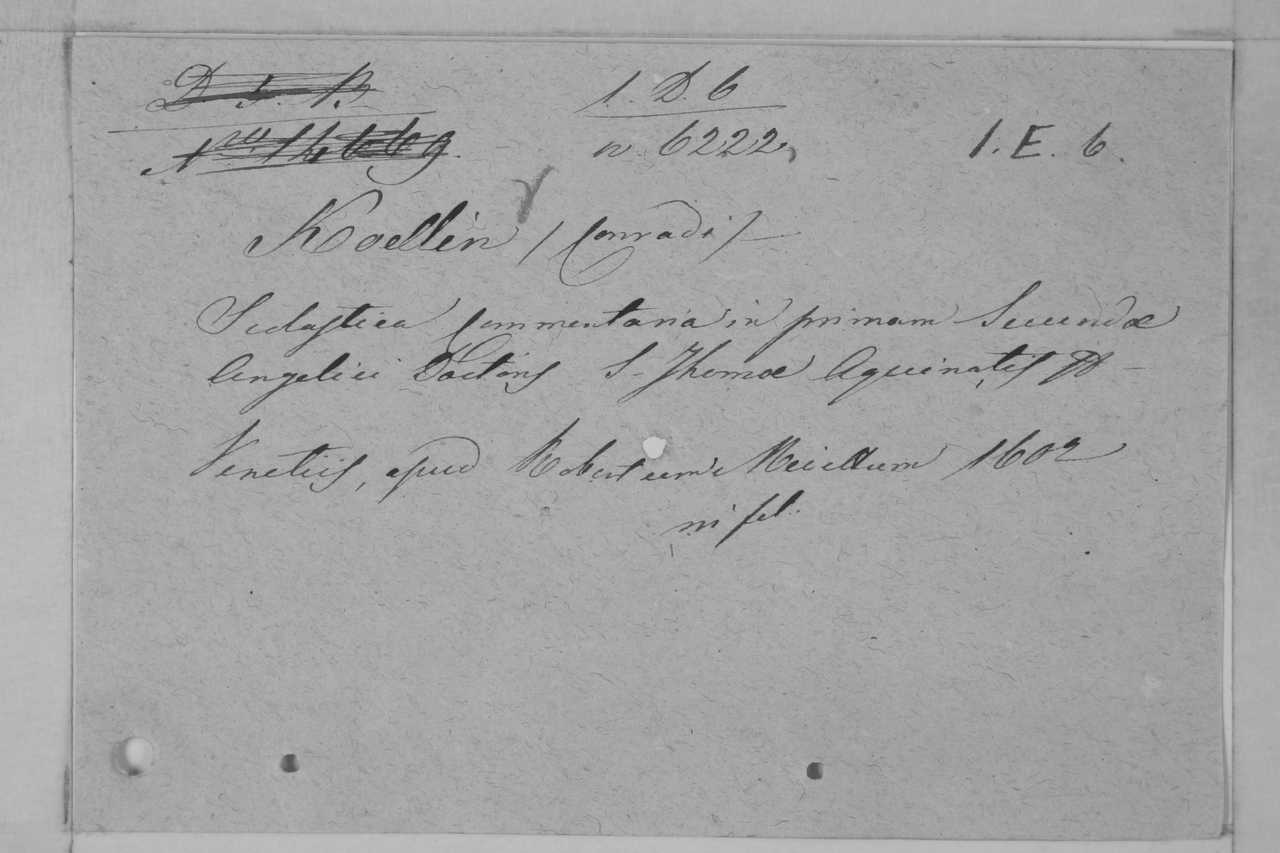 D. 5. B 1. D. 6
Nro 14669. n. 6222, 1. E. 6.
Koellin / Conradi /
Scolastica Commentaria in primam Secundæ
Angelici Doctoris S. Thomæ Aquinatis
Venetiis, apud Robertum Meiettum 1602
in fol.